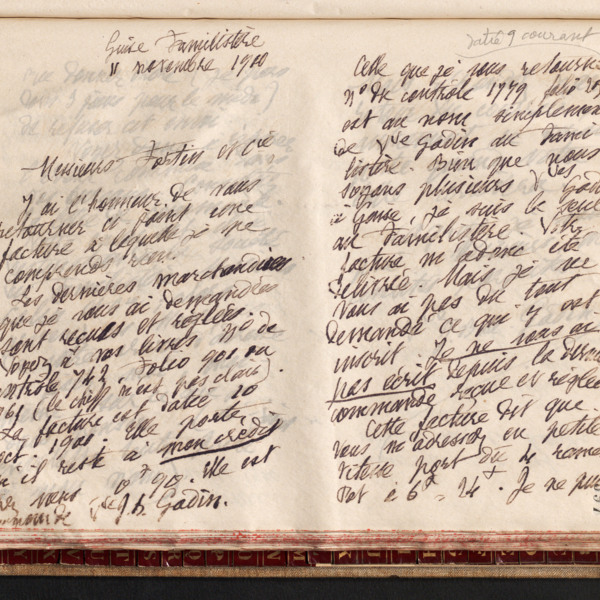 Guise Familistère
11 novembre 1900
Messieurs Fortin et Cie
J'ai l'honneur de vous
retourner ci joint une
facture à laquelle je ne
comprends rien.
Les dernières marchandises
que je vous ai demandées
sont reçues et réglées.
à vos livres N° de
contrôle 742. Folio 901 ou
961 (le chiff. n'est pas clair).
La facture est datée 20
oct. 1900. Elle porte
qu'il reste à mon crédit
0f 90. Elle est
vous Vve J. B. Godin.
datée 9 courant
Celle que je vous retourne
N° du contrôle 1779 folio
est au nom simplement
de Vve Godin au Fami
listère. Bien que nous
soyons plusieurs Vves Godin
à Guise, je suis la seule
au Familistère. Votre
facture m'a donc été
délivrée. Mais je ne
vous ai pas du tout
demandé ce qui y est
inscrit. Je ne vous ai
pas écrit depuis la dernière
commande reçue et réglée.
Cette facture dit que
vous m'adressez en petite
vitesse port dû 4 rames
à 6f = 24f. Je ne puis